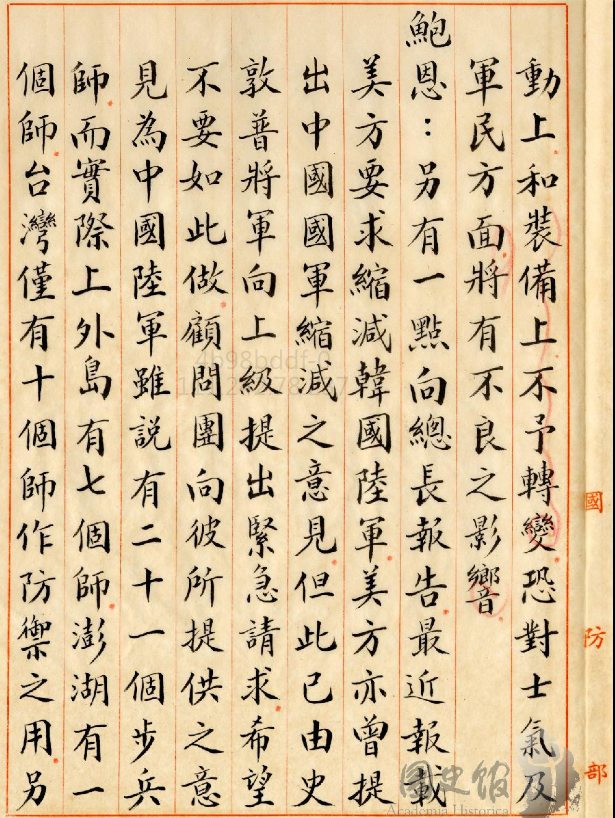 動上和裝備上不予轉變恐對士氣及
軍民方面將有不良之影響
鮑恩：另有一點向總長報告最近報載
美方要求縮減韓國陸軍美方亦曾提
出中國國軍縮減之意見但此已由史
敦普將軍向上級提出緊急請求希望
不要如此做顧問團向彼所提供之意
見為中國陸軍雖說有二十一個步兵
師而實際上外島有七個師澎湖有一
個師台灣僅有十個師作防禦之用另
國防部
國史館
Academia Historica